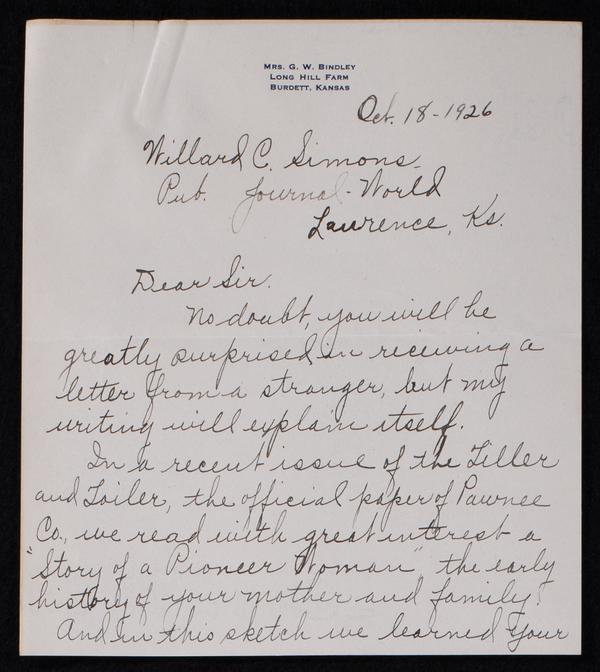 MRS. G. W. BINDLEY
LONG HILL FARM
BURDETT, KANSAS
Oct. 18-1926
Willard C. Simons.
Pub. Journal-World
Lawrence, Ks.
Dear Sir.
No doubt, you will be
greatly surprised in receiving a
letter from a stranger, but my
writing will explain itself.
In a recent issue of the Tiller
and Toiler, the official paper of Pawnee
Co., we read with great interest a
"Story of a Pioneer Woman" the early
history of your mother and family.
And in this sketch we learned your